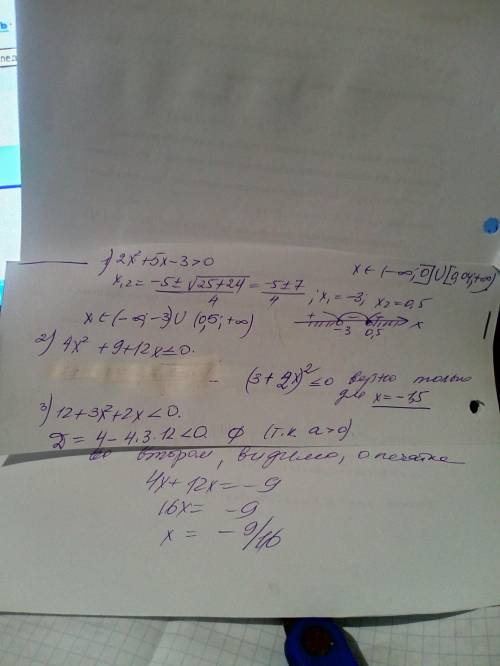 1) 2x² + 5x - 3 > 0
x ∈ (-∞; 0] ∪ [0,04; +∞)
x₁,₂ = (-5 ± √(25+24))/4 = (-5 ± 7)/4 ; x₁ = -3; x₂ = 0,5
x ∈ (-∞; -3) ∪ (0,5; +∞)
+ - + -3 0,5 x
2) 4x² + 9 + 12x ≤ 0.
(3 + 2x)² ≤ 0 верно только
для x = -1,5
3) 12 + 3x² + 2x < 0.
D = 4 - 4·3·12 < 0. ∅ (т.к. a > 0).
во втором, видимо, опечатка
4x + 12x = -9
16x = -9
x = -9/16